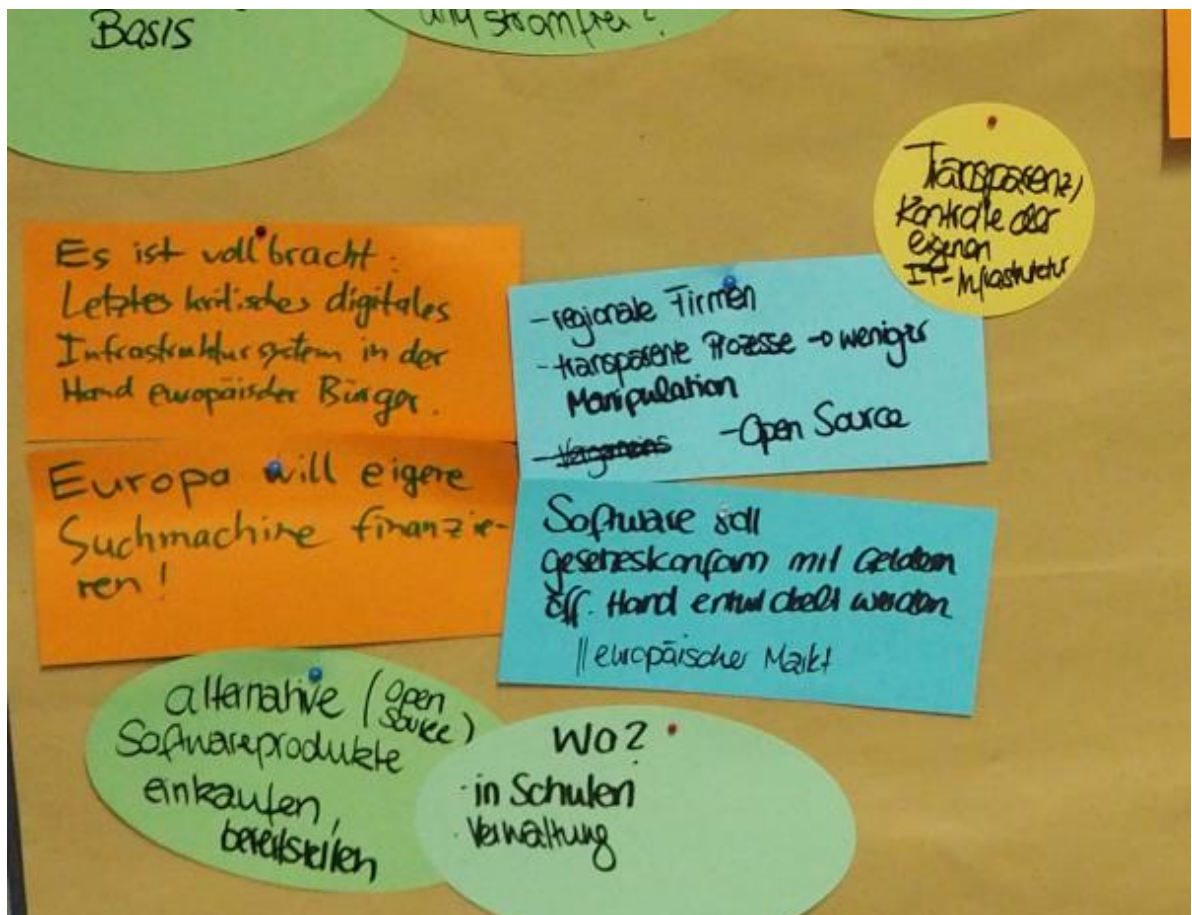 Basis
und stromfrei?
Transparenz/
Kontrolle der
eigenen
IT-Infrastruktur
Es ist vollbracht:
Letztes kritisches digitales
Infrastruktursystem in der
Hand europäischer Bürger.
- regionale Firmen
- transparente Prozesse → weniger
Manipulation
- Open Source
Europa will eigene
Suchmachine finanzie-
ren!
Software soll
gesetzeskonform mit Geldern
öff. Hand entwickelt werden
|| europäischer Markt
alternative (Open
Source)
Softwareprodukte
einkaufen,
bereitstellen
Wo?
· in Schulen
· Verwaltung